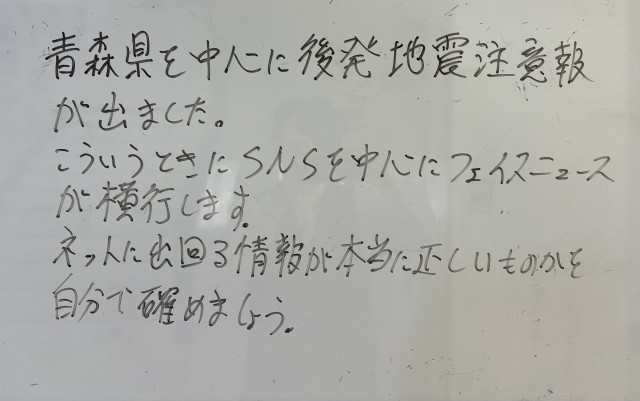 青森県を中心に後発地震注意報
が出ました。
こういうときにSNSを中心にフェイスニュース
が横行します。
ネットに出回る情報が本当に正しいものかを
自分で確めましょう。